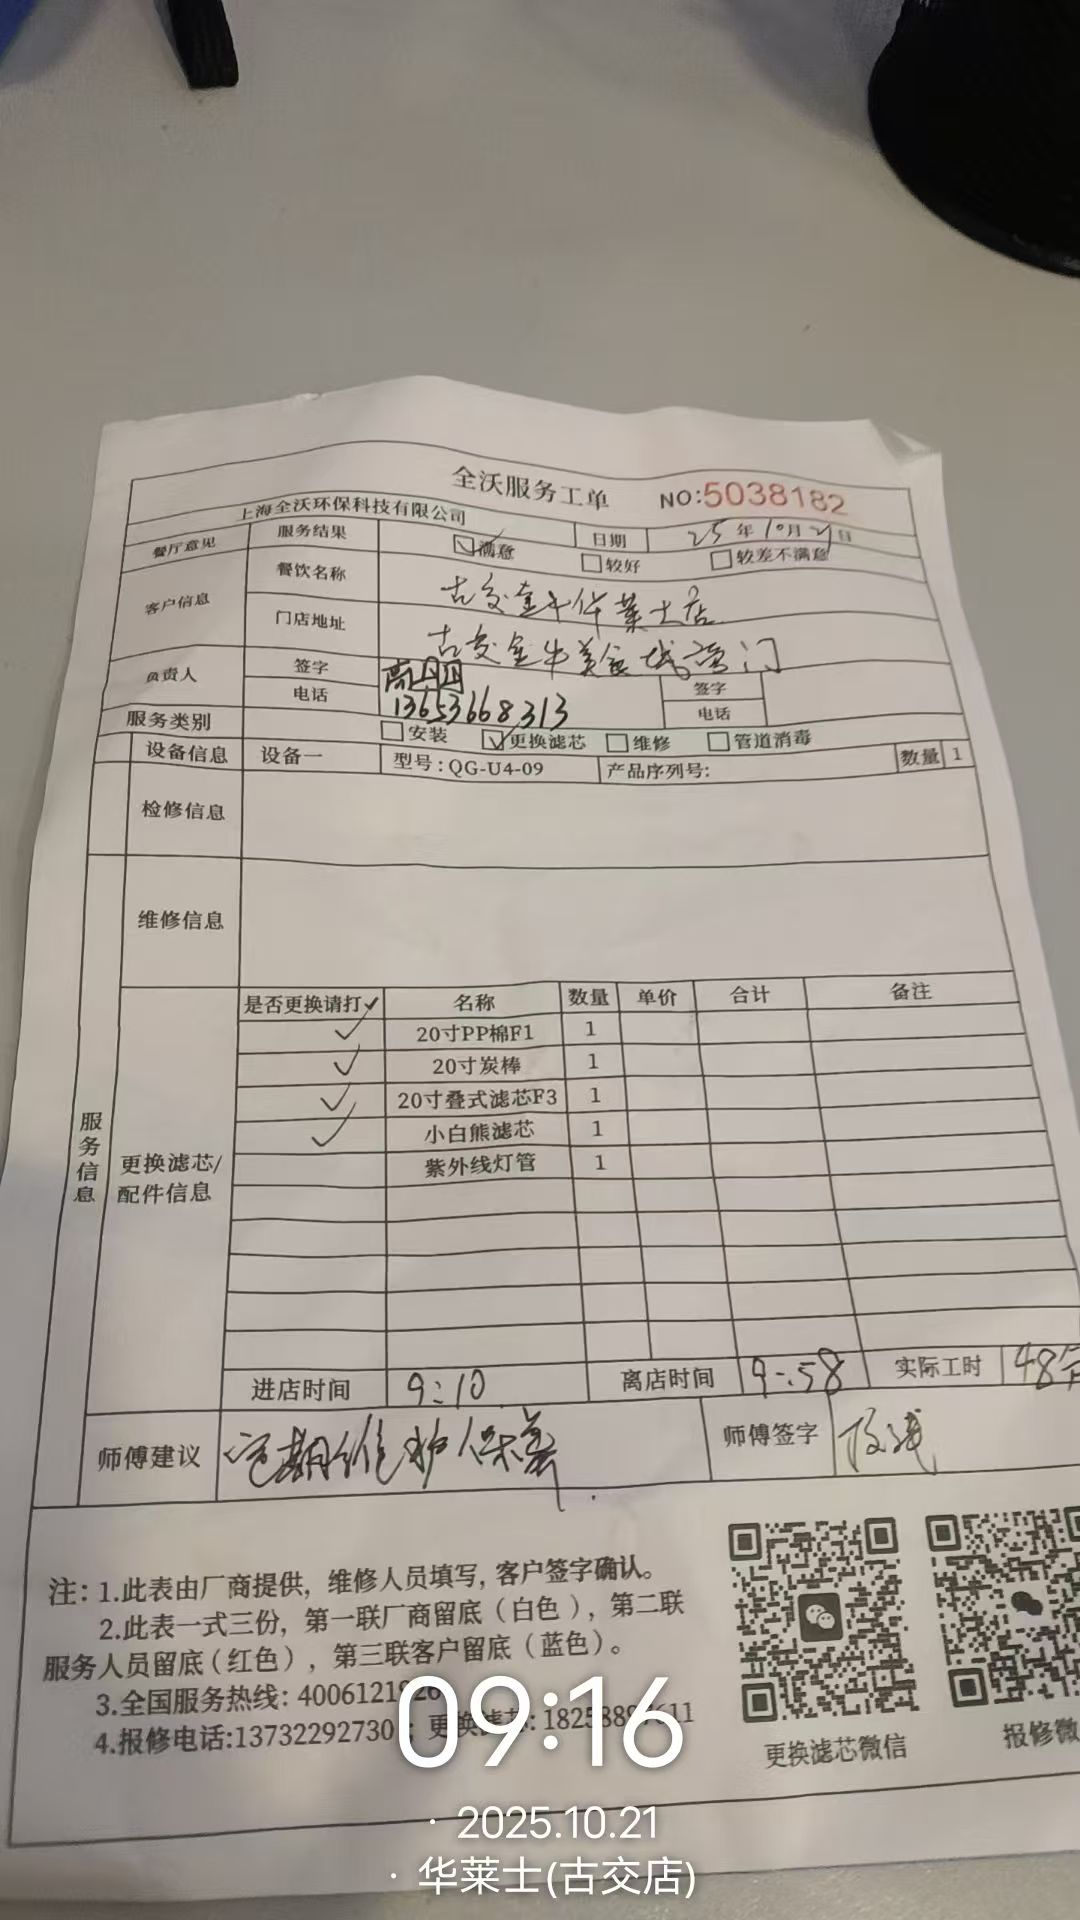 全沃服务工单 NO:5038182
上海全沃环保科技有限公司
餐厅意见 服务结果 满意 日期 25年10月21日
较好 较差不满意
客户信息 餐饮名称 古交金牛华莱士店
门店地址 古交金牛美食城旁门
负责人 签字 签字
电话 13653668313 电话
服务类别 安装 更换滤芯 维修 管道消毒
设备信息 设备一 型号:QG-U4-09 产品序列号: 数量 1
检修信息
维修信息
服务信息
更换滤芯/配件信息
是否更换请打✓ 名称 数量 单价 合计 备注
✓ 20寸PP棉F1 1
✓ 20寸炭棒 1
✓ 20寸叠式滤芯F3 1
✓ 小白熊滤芯 1
紫外线灯管 1
进店时间 9:10 离店时间 9:58 实际工时 48分
师傅建议 定期维护保养. 师傅签字
注:1.此表由厂商提供,维修人员填写,客户签字确认。
2.此表一式三份,第一联厂商留底(白色),第二联
服务人员留底(红色),第三联客户留底(蓝色)。
3.全国服务热线:4006121
4.报修电话:13732292730;更换滤芯:18258897611
更换滤芯微信 报修微
09:16
· 2025.10.21
· 华莱士(古交店)